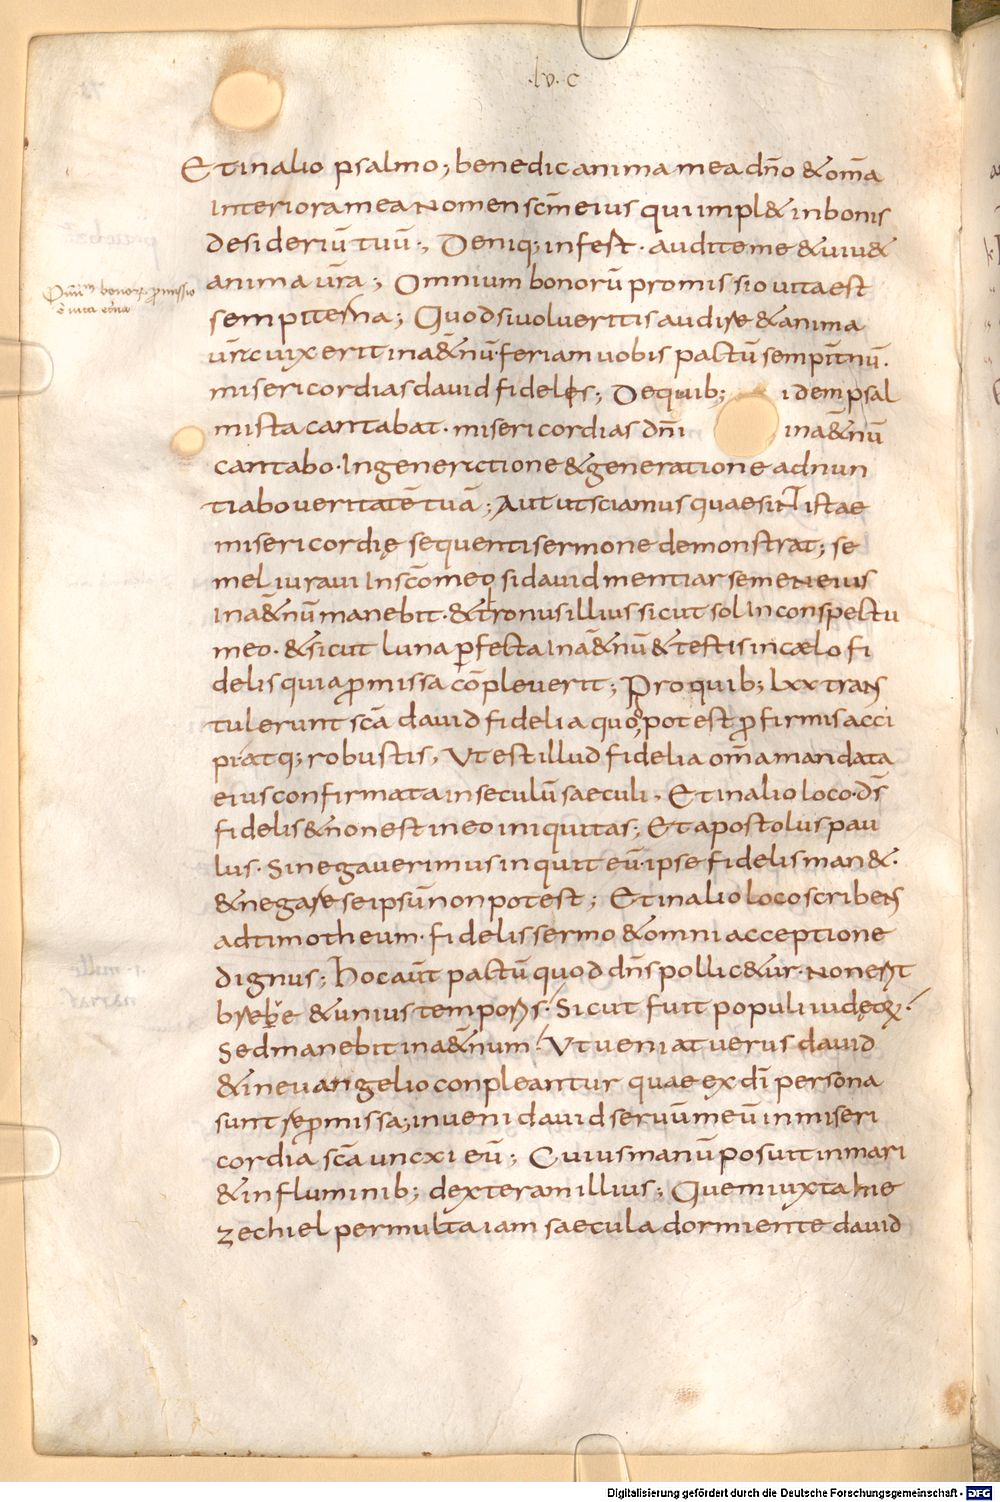 .lv. c
Et in alio psalmo; benedic anima mea dño & om̄a
interiora mea nomen scm̄ eius qui impl& in bonis
desideriū tuū;, Deniq; infest· audite me & uiu&
anima ur̄a; Omnium bonorū promissio uita est
sempiterna; Quod si uolueritis audire & anima
ur̄a uixerit in a&̄nū· feriam uobis pactū sempit̄nū·
misericordias dauid fideles; De quib; idem psal
mista cantabat· misericordias dn̄i in a&̄nū
cantabo· In generatione & generatione adnun
tiabo ueritatē tuā; Aut ut sciamus quae sint istae
misericordię sequenti sermone demonstrat; se
mel iuraui in scō meo, si dauid mentiar semen eius
in a&̄nū manebit· & tronus illius sicut sol in conspectu
meo· & sicut luna ꝑfecta in a&̄nū & testis in cælo fi
delis quia ꝓmissa cōpleuerit; Pro quib; lxx trans
tulerunt scā dauid fidelia quo potest ꝓ firmis acci
pi atq; robustis, Ut est illud fidelia om̄a mandata
eius confirmata in seculū saeculi, Et in alio loco· dś
fidelis & non est in eo iniquitas; Et apostolus pau
lus· Si negauerimus inquit eū· ipse fidelis man&·
& negare se ipsū non potest; Et in alio loco scribens
ad timotheum· fidelis sermo & omni acceptione
dignus; Hoc aūt pactū quod dn̄s pollic&ur· non erit
breue & unius temporis· Sicut fuit populi iudęoꝝ·
Sed manebit in a&̄num· Ut ueniat uerus dauid
& in euangelio conpleantur quae ex dī persona
sunt reꝓmissa; inueni dauid seruū meū in miseri
cordia scā uncxi eū; Cuius manū posuit in mari
& in fluminib; dexteram illius; Quem iuxta hie
zechiel per multa iam saecula dormiente dauid
Om̄iū bonoꝝ ꝓmissio
ē uita et̄na